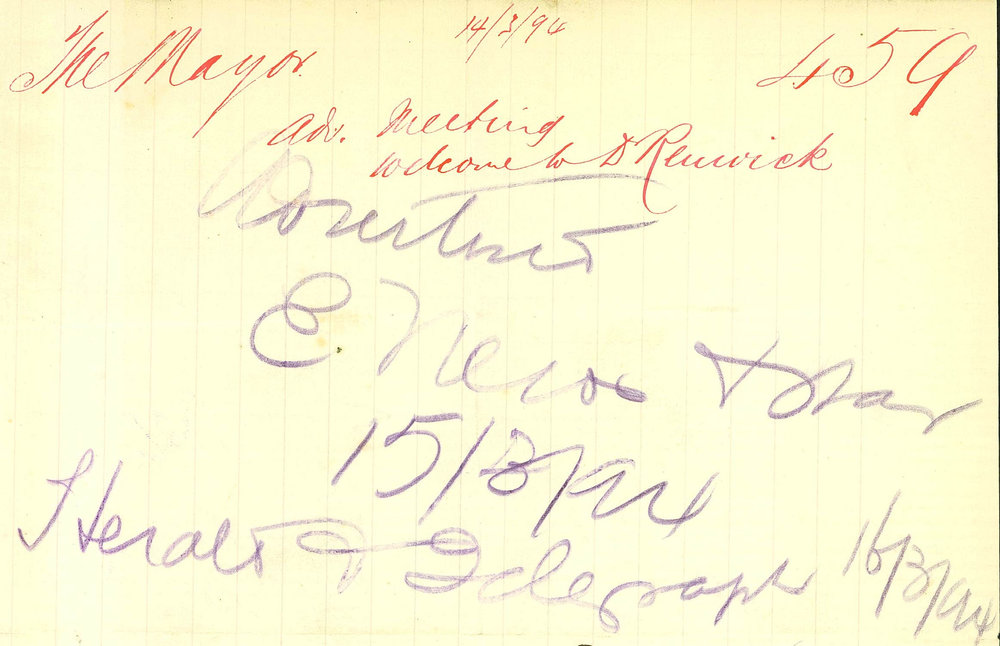 14/3/94
The Mayor. 459
adv. Meeting
welcome to D Renwick
Advertised
E. News & Star
15/3/94
Herald & Telegraph 16/3/94